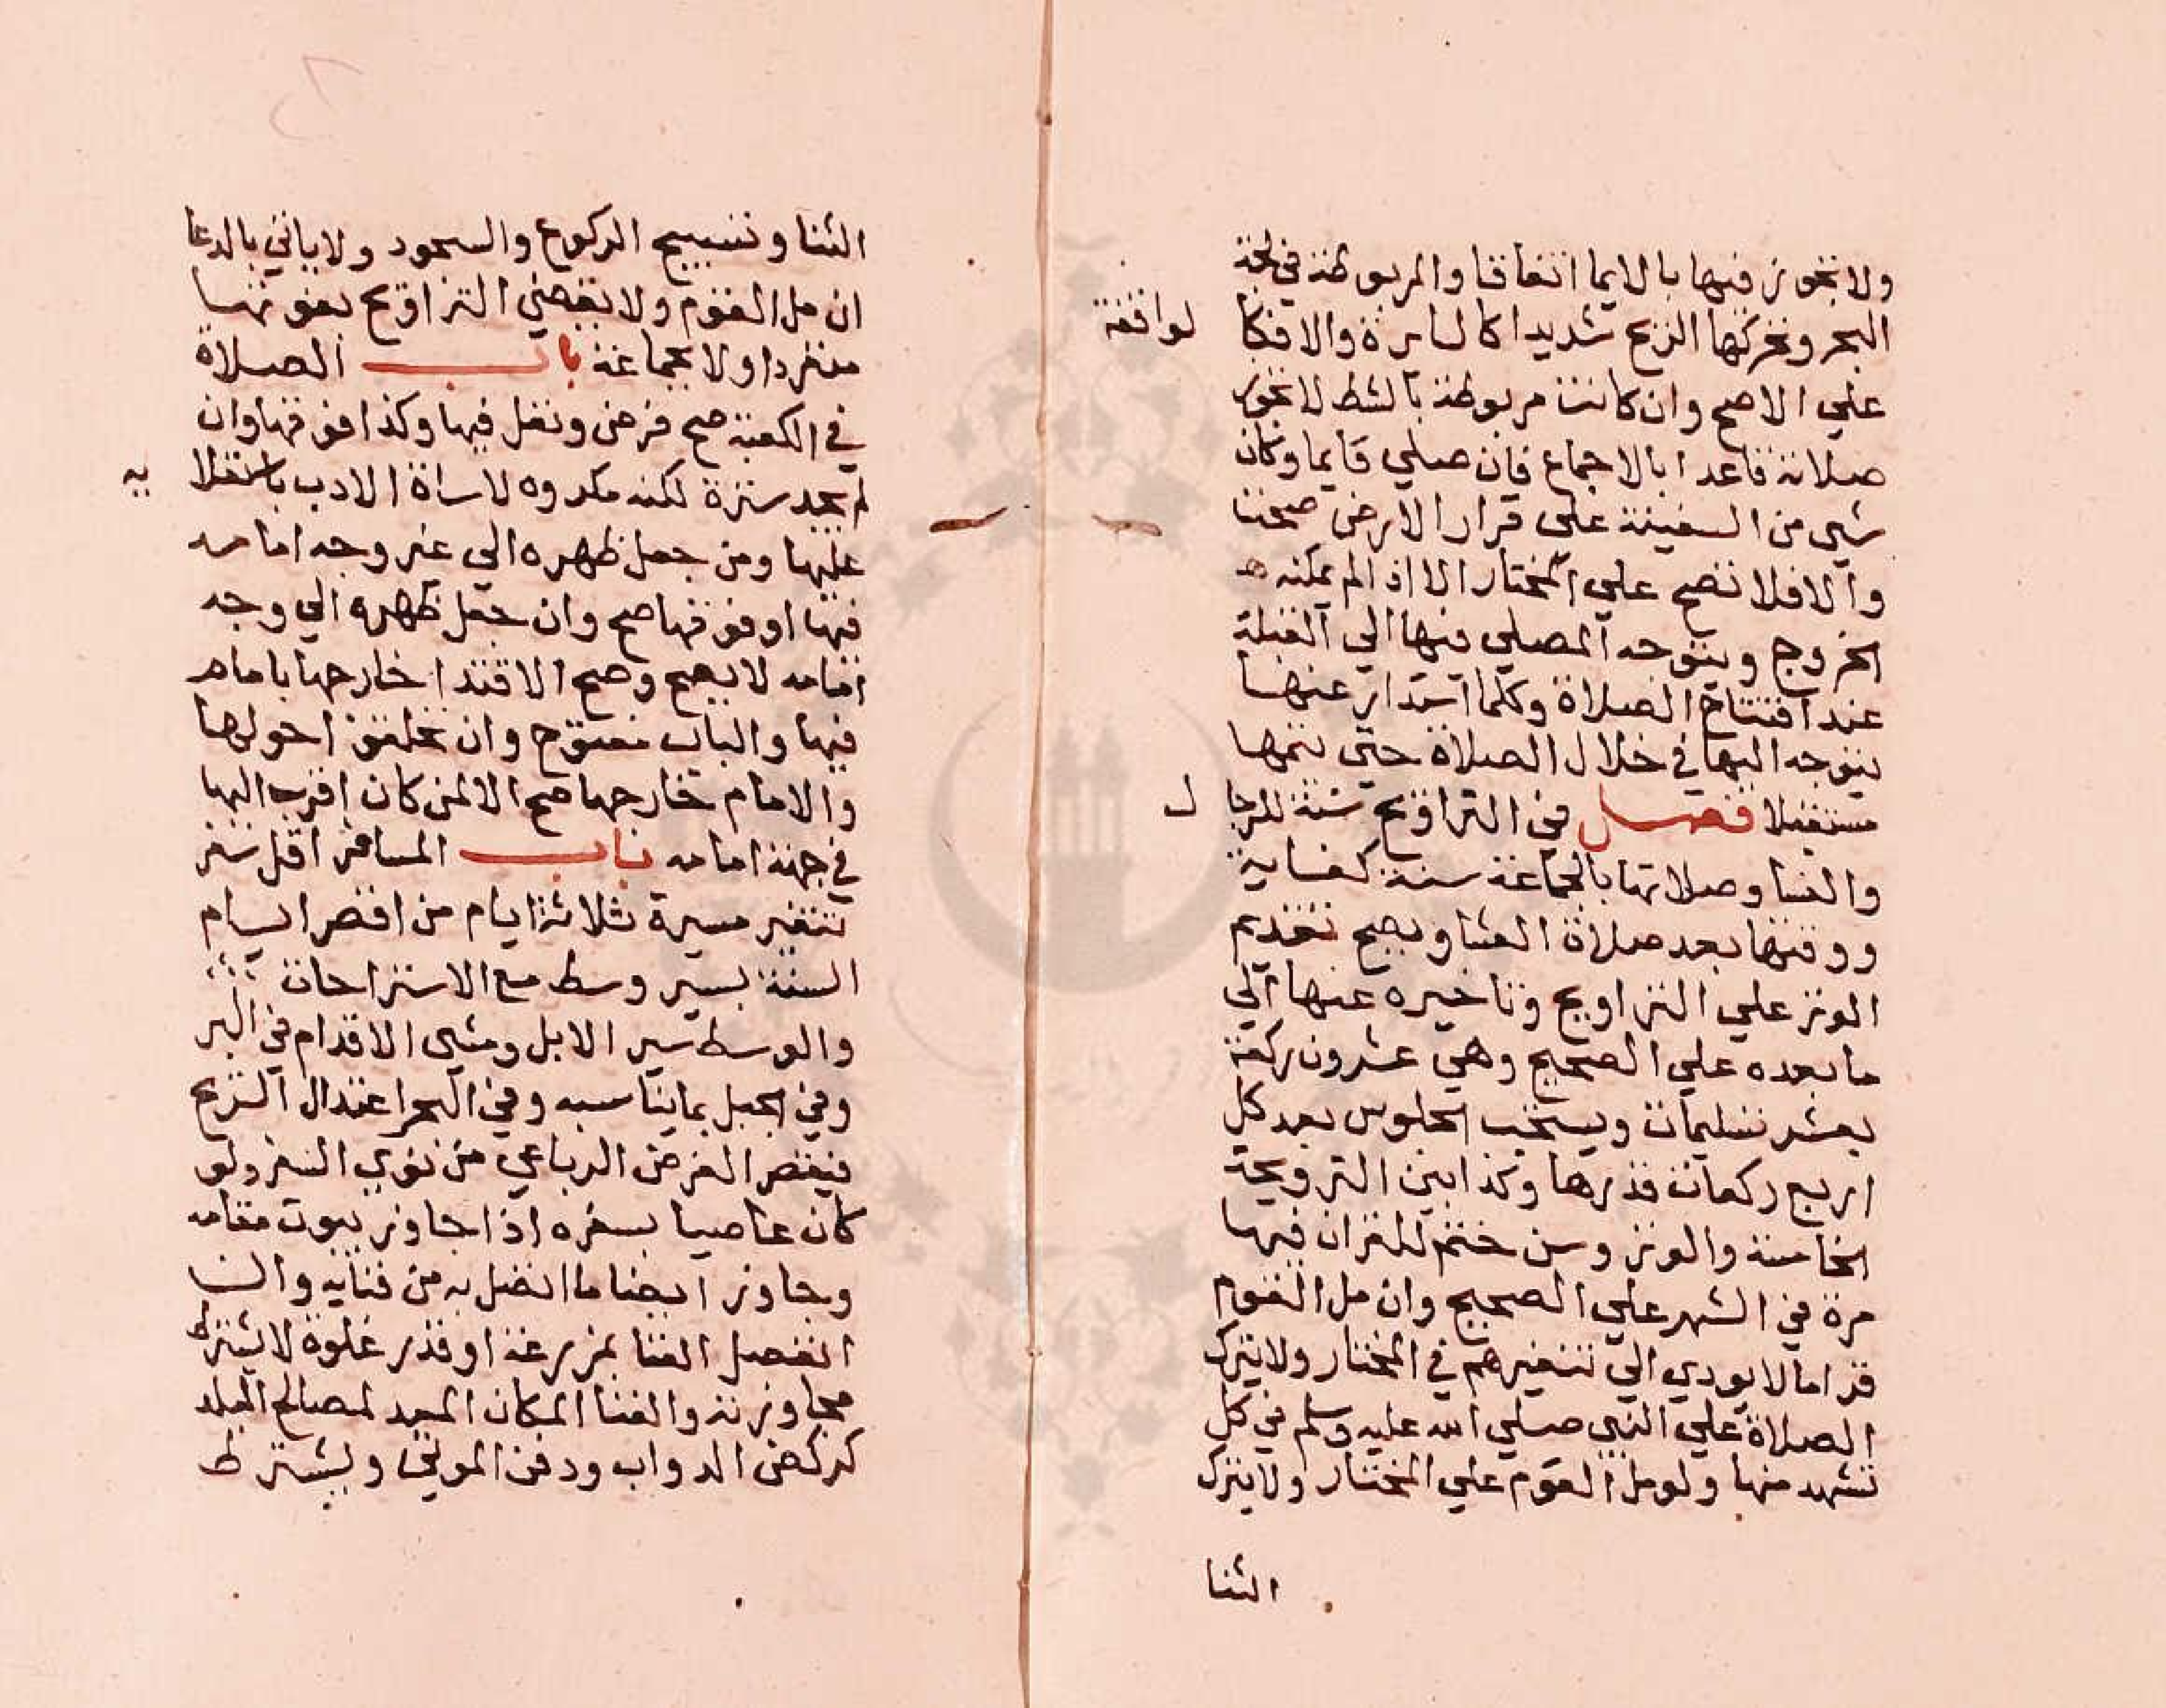 ولا تجوز فيها بالايما اتفاقا والمربوطة في لجة
البحر وتحركها الريح شديدا كالسايرة والا فكا لواقفة
علي الاصح وان كانت مربوطة بالشط لا تجوز
صلاته قاعدا بالاجماع فان صلي قايما وكان
شي من السفينة علي قرار الارض صحت
والا فلا تصح علي المختار الا اذا لم يمكنه
الخروج ويتوجه المصلي فيها الي القبلة
عند افتتاح الصلاة وكلما استدار عنها
يتوجه اليها في خلال الصلاة حتي يتمها
مستقبلا فصل في التراويح سنة للرجا ل
والنسا وصلاتها بالجماعة سنة كفاية
ووقتها بعد صلاة العشا ويصح تقديم
الوتر علي التراويح وتاخيره عنها الي
ما بعده علي الصحيح وهي عشرون ركعة
بعشر تسليمات ويستحب الجلوس بعد كل
اربع ركعات قدرها وكذا بين الترويحة
الخامسة والوتر وسن ختم القران فيها
مرة في الشهر علي الصحيح وان مل القوم
قرا ما لا يودي الي تنفيرهم في المختار ولا يترك
الصلاة علي النبي صلي الله عليه وسلم في كل
تشهد منها ولو مل القوم علي المختار ولا يترك
الثنا
الثنا وتسبيح الركوع والسجود ولا ياتي بالدعا
ان مل القوم ولا يقضي التراويح بفوتها
منفردا ولا بجماعة باب الصلاة
في الكعبة صح فرض ونفل فيها وكذا فوقها وان
لم يجد سترة لكنه مكروه لاساة الادب باستعلا يه
عليها ومن جعل ظهره الي غير وجه امامه
فيها او فوقها صح وان جعل ظهره الي وجه
امامه لا يصح وصح الاقتدا خارجها بامام
فيها والباب مفتوح وان تحلقوا حولها
والامام خارجها صح الا لمن كان اقرب اليها
في جهة امامه باب المسافر اقل سفر
تتغير مسيرة ثلاثة ايام من اقصر ايام
السنة بسير وسط مع الاستراحات
والوسط سير الابل ومشي الاقدام في البر
وفي الجبل بما يناسبه وفي البحر اعتدال الريح
فيقصر الفرض الرباعي من نوي السفر ولو
كان عاصيا بسفره اذا جاوز بيوت مقامه
وجاوز ايضا ما اتصل به من فنايه وان
انفصل الفنا بمزرعة او قدر غلوة لا يشترط
مجاوزته والفنا المكان المعد لمصالح البلد
كركض الدواب ودفن الموتي ويشترط